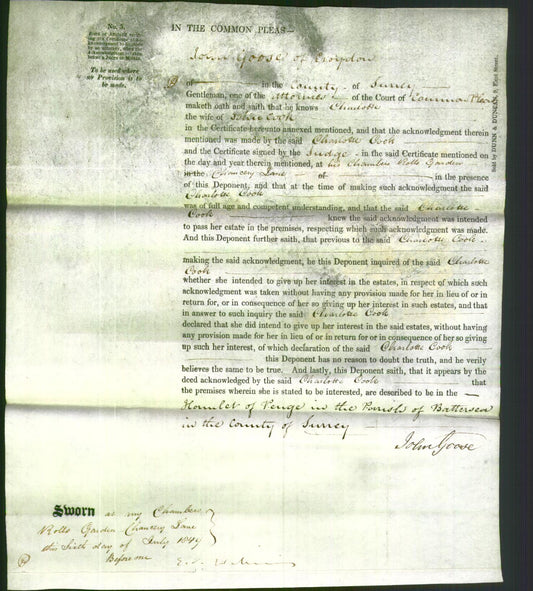 No. 3.
To be used where
no Provision is to
be made.
IN THE COMMON PLEAS—
John Goose of Croydon
of in the County of Surrey
Gentleman, one of the Attornies of the Court of Common Pleas
maketh oath and saith that he knows Charlotte
the wife of Cook
in the Certificate hereunto annexed mentioned, and that the acknowledgment therein
mentioned was made by the said Charlotte Cook
and the Certificate signed by the Judge in the said Certificate mentioned on
the day and year therein mentioned, at his Chambers Rolls Garden
in the Chancery Lane of in the presence
of this Deponent, and that at the time of making such acknowledgment the said
Charlotte Cook
was of full age and competent understanding, and that the said Charlotte
Cook knew the said acknowledgment was intended
to pass her estate in the premises, respecting which such acknowledgment was made.
And this Deponent further saith, that previous to the said Charlotte Cook
making the said acknowledgment, he this Deponent inquired of the said Charlotte
Cook
whether she intended to give up her interest in the estates, in respect of which such
acknowledgment was taken without having any provision made for her in lieu of or in
return for, or in consequence of her so giving up her interest in such estates, and that
in answer to such inquiry the said Charlotte Cook
declared that she did intend to give up her interest in the said estates, without having
any provision made for her in lieu of or in return for or in consequence of her so giving
up such her interest, of which declaration of the said Charlotte Cook
this Deponent has no reason to doubt the truth, and he verily
believes the same to be true. And lastly, this Deponent saith, that it appears by the
deed acknowledged by the said Charlotte Cook that
the premises wherein she is stated to be interested, are described to be in the
Hamlet of Penge in the Parish of Battersea
in the County of Surrey
John Goose
Sworn at my Chambers
Rolls Garden Chancery Lane
this Sixth day of July 1849
Before me
Sold by DUNN & DUNCAN, 9, Fleet Street.